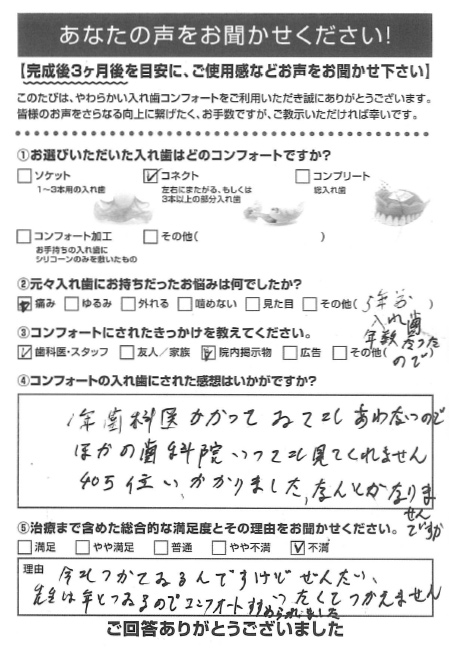 あなたの声をお聞かせください!
【完成後3ヶ月後を目安に、ご使用感などお声をお聞かせ下さい】
このたびは、やわらかい入れ歯コンフォートをご利用いただき誠にありがとうございます。
皆様のお声をさらなる向上に繋げたく、お手数ですが、ご教示いただければ幸いです。
①お選びいただいた入れ歯はどのコンフォートですか?
ソケット
1〜3本用の入れ歯
コネクト
左右にまたがる、もしくは
3本以上の部分入れ歯
コンプリート
総入れ歯
コンフォート加工
お手持ちの入れ歯に
シリコーンのみを敷いたもの
その他( )
②元々入れ歯にお持ちだったお悩みは何でしたか?
痛み ゆるみ 外れる 噛めない 見た目 その他(5年前)
入れ歯
年数たったので
③コンフォートにされたきっかけを教えてください。
歯科医・スタッフ 友人/家族 院内掲示物 広告 その他( )
④コンフォートの入れ歯にされた感想はいかがですか?
1年歯科医かかって あわないので
ほかの歯科院いっても見てくれません
40万位いかかりました、なんとかなりま
せん
ですか
⑤治療まで含めた総合的な満足度とその理由をお聞かせください。
満足 やや満足 普通 やや不満 不満
理由 今もつかてゐるんですけどぜんたい、
先生は年とつゐるのでコンフォートすすめられました いたくてつかえません
ご回答ありがとうございました